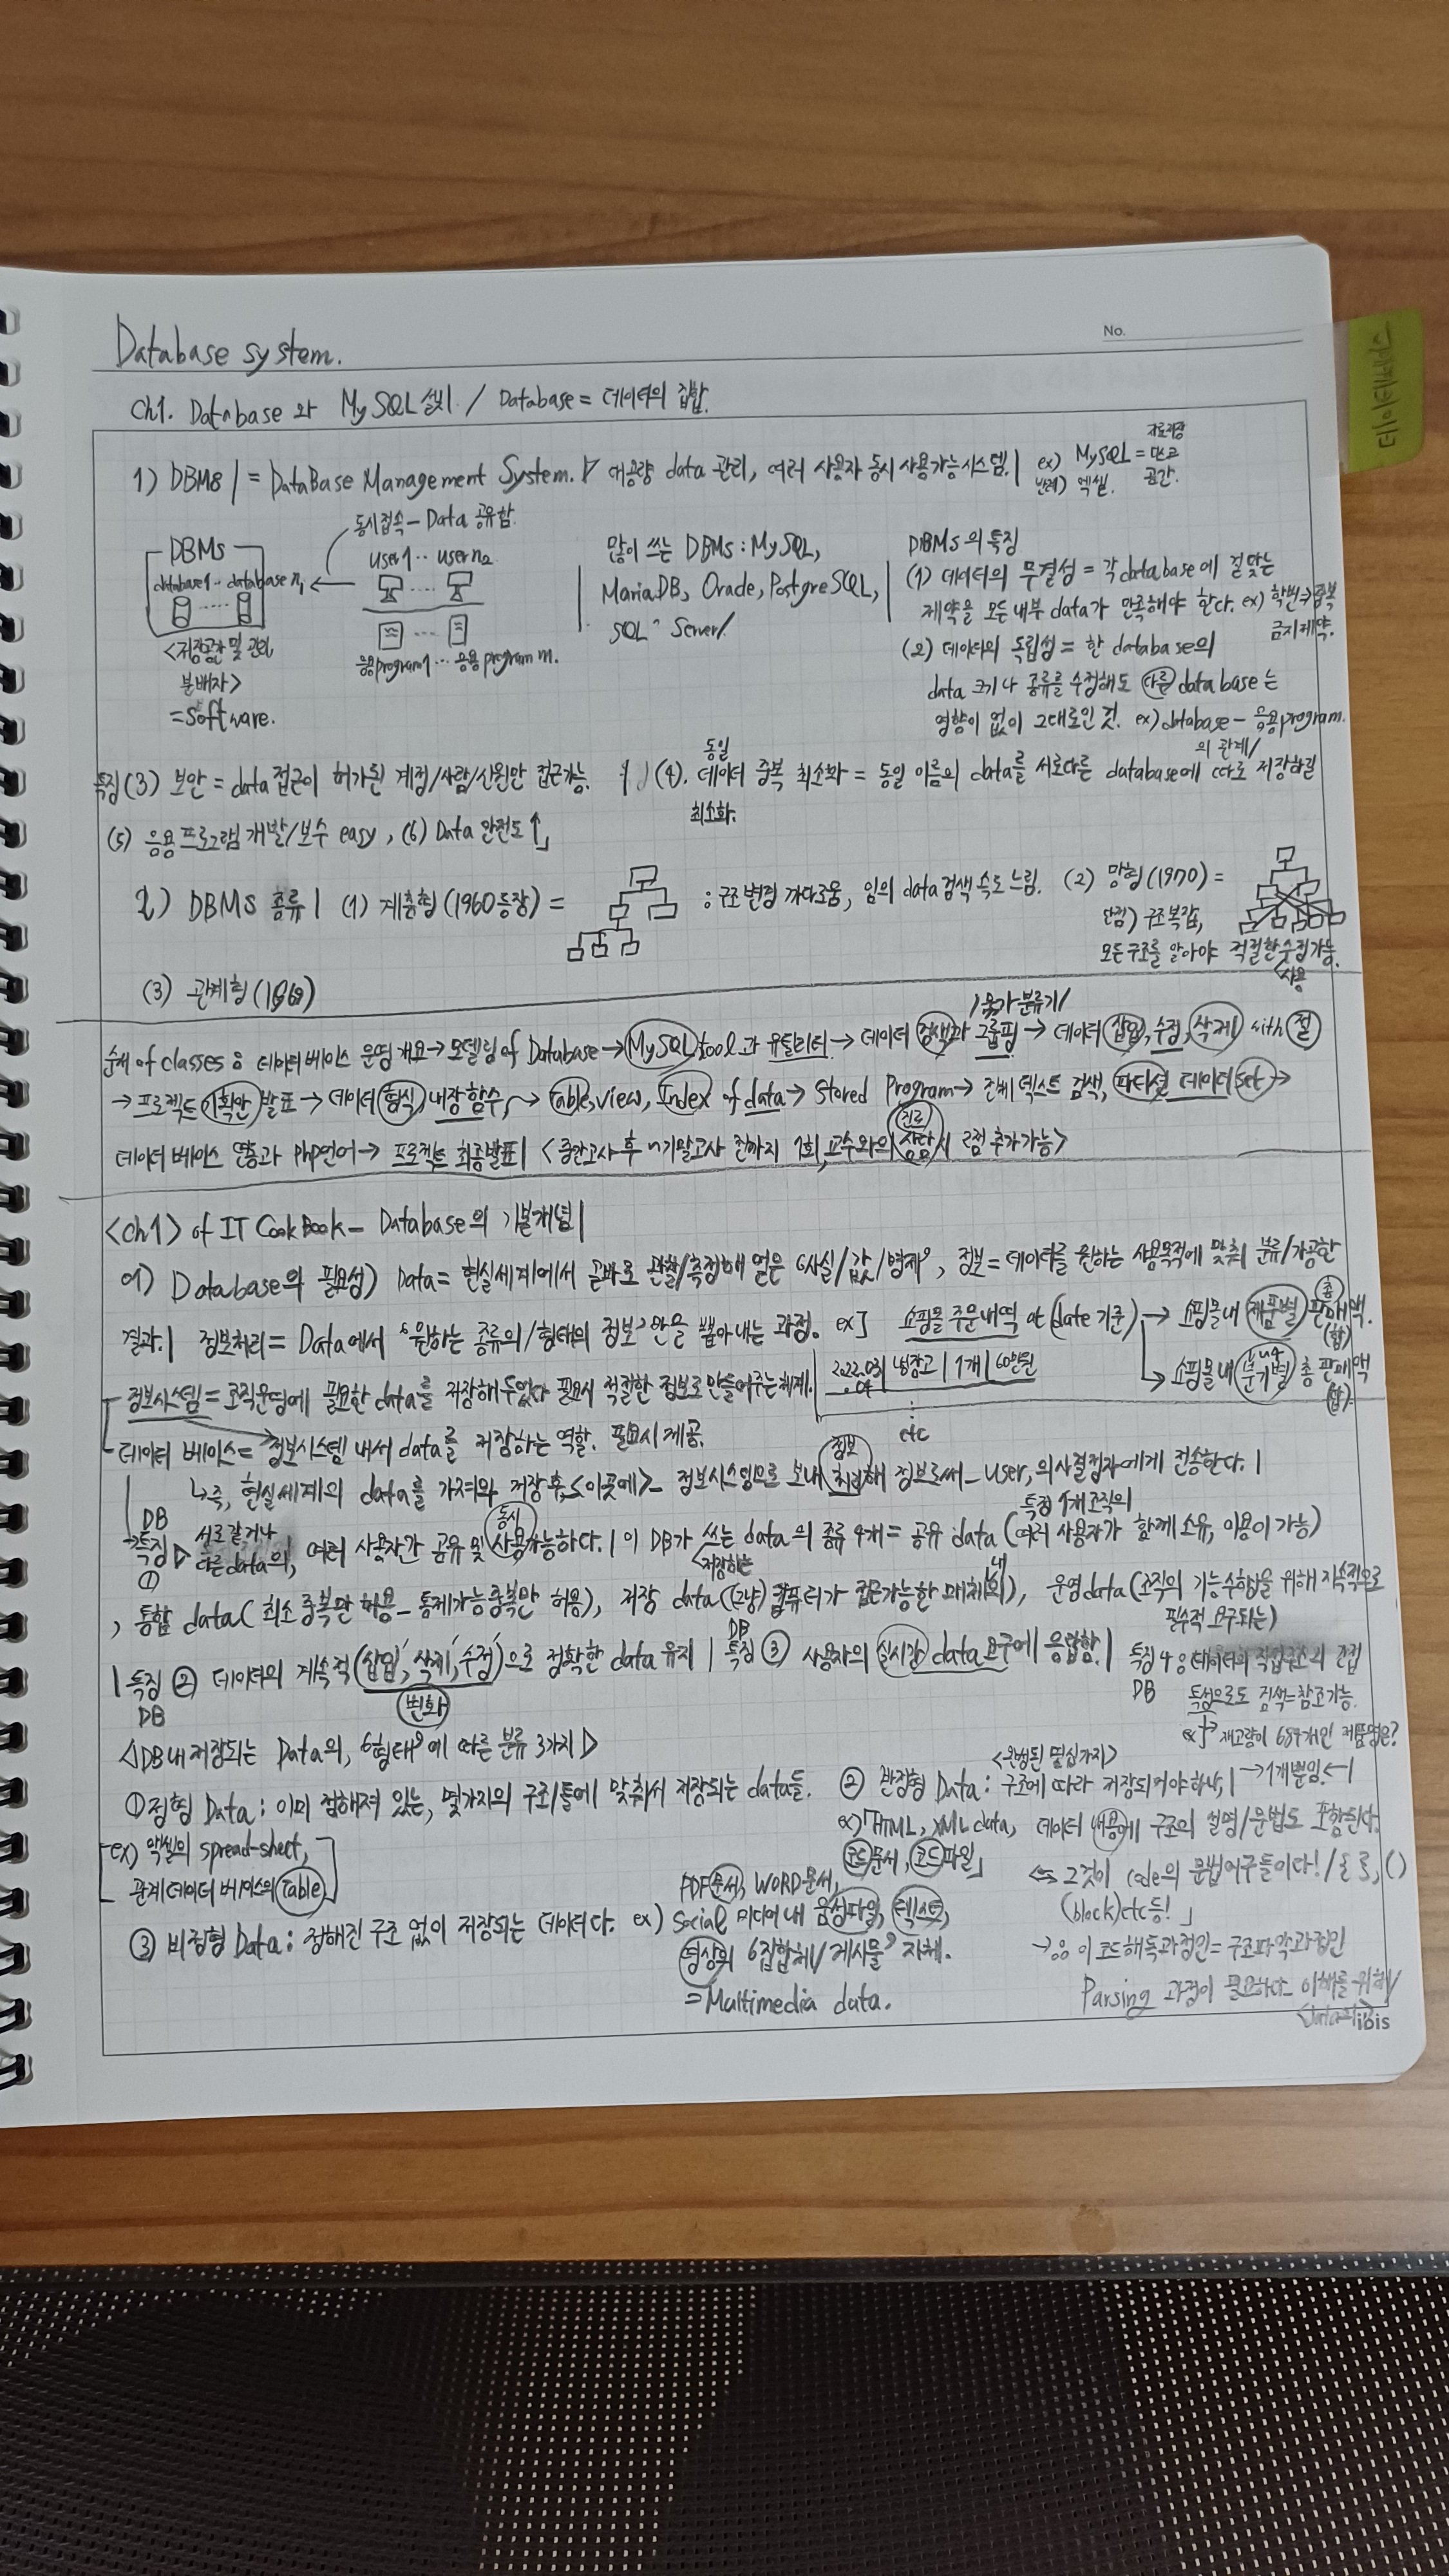 No.
데이터베이스
Database system.
Ch1. Database 와 MySQL 설치. / Database = 데이터의 집합.
1) DBMS | = DataBase Management System. ▷ 대용량 data 관리, 여러 사용자 동시 사용가능 시스템. | ex) MySQL = 자료저장 공간.
반례) 엑셀.
동시접속 - Data 공유함.
DBMs
database1 ·· database n,
user1 ·· user n2
<저장공간 및 관리, 분배자>
= Software.
응용program1 ··· 응용 program m.
많이 쓰는 DBMs : MySQL,
MariaDB, Oracle, PostgreSQL,
SQL Server/
DBMs의 특징
(1) 데이터의 무결성 = 각 database에 걸맞는
제약을 모든 내부 data가 만족해야 한다. ex) 학번→중복
금지 제약.
(2) 데이터의 독립성 = 한 database의
data 크기나 종류를 수정해도 다른 database는
영향이 없이 그대로인 것. ex) database - 응용program.
의 관계/
특징 (3) 보안 = data 접근이 허가된 계정/사람/신원만 접근가능.
(4). 동일 데이터 중복 최소화 = 동일 이름의 data를 서로다른 database에 따로 저장하길
최소화.
(5) 응용 프로그램 개발/보수 easy, (6) Data 안전도↑
2) DBMS 종류 | (1) 계층형 (1960 등장) = : 구조 변경 까다로움, 임의 data 검색 속도 느림. (2) 망형 (1970) =
단점) 구조 복잡,
모든 구조를 알아야 적절한 수정가능.
사용
(3) 관계형
/ 용가 분류기 /
순서 of classes : 데이터 베이스 운영 개요 → 모델링 of Database → MySQL tool과 유틸리티 → 데이터 검색과 그룹핑 → 데이터 삽입, 수정, 삭제 with 절
→ 프로젝트 기획안 발표 → 데이터 형식, 내장함수, → table, view, Index of data → Stored Program → 전체 텍스트 검색, 파티션 데이터 set →
데이터 베이스 연동과 PhP언어 → 프로젝트 최종발표 | <중간고사 후 ~ 기말고사 전까지 1회, 교수와의 진로 상담시 2점 추가 가능>
<ch1> of IT CookBook - Database의 기본개념 |
01) Database의 필요성) Data = 현실세계에서 곧바로 관찰/측정해 얻은 '사실/값/명제', 정보 = 데이터를 원하는 사용목적에 맞춰 분류/가공한
결과. | 정보처리 = Data에서 '원하는 종류의/형태의 정보' 만을 뽑아내는 과정. ex] 쇼핑몰 주문내역 at (date 기준) → 쇼핑몰 내 제품별 총 판매액.
(합)
2022.03 | 냉장고 | 1개 | 60만원
→ 쇼핑몰 내 분기별 총 판매액
(합)
etc
정보시스템 = 조직운영에 필요한 data를 저장해두었다 필요시 적절한 정보로 만들어주는 체계.
데이터 베이스 = 정보시스템 내서 data를 저장하는 역할. 필요시 제공.
↳ 즉, 현실세계의 data를 가져와 저장 후, <이곳에> - 정보시스템으로 보내 정보 처리해 정보로써 - user, 의사결정자에게 전송한다. |
DB
특징 ① ▷ 서로 같거나 다른 data의, 여러 사용자간 공유 및 동시 사용가능하다. | 이 DB가 쓰는 data의 종류 4개 = 공유 data (특정 1개 조직의 여러 사용자가 함께 소유, 이용이 가능)
저장하는
, 통합 data (최소 중복만 허용 - 통제가능 중복만 허용), 저장 data ((그냥) 컴퓨터가 접근가능한 매체 내의), 운영 data (조직의 기능수행을 위해 지속적으로
필수적 요구되는)
| 특징 ② 데이터의 계속적 (삽입, 삭제, 수정)으로 정확한 data 유지 | DB 특징 ③ 사용자의 실시간 data 요구에 응답함. | 특징 4 :
DB
변화
DB
특성으로도 검색=참조가능.
ex) → 재고량이 684개인 제품명은?
◁ DB내 저장되는 Data의, '형태'에 따른 분류 3가지 ▷
① 정형 Data : 이미 정해져 있는, 몇가지의 구조/틀에 맞춰서 저장되는 data들. ② 반정형 Data : 구조에 따라 저장되어야 하나, | → 1개뿐임. ← |
ex) 「HTML, XML data, 데이터 내용에 구조의 설명/문법도 포함된다.
코드문서, 코드파일」
ex) 엑셀의 spread-sheet,
관계 데이터 베이스의 table
↔ 그것이 code의 문법어구들이다! / { }, ()
(block) etc 등! 」
PDF문서, WORD문서,
③ 비정형 Data : 정해진 구조 없이 저장되는 데이터다. ex) Social 미디어 내 음성파일, 텍스트,
영상의 '집합체/게시물' 자체.
= Multimedia data.
→ ∴ 이 코드해독과정인 = 구조파악과정인
Parsing 과정이 필요하다 이해를 위해/
ibis